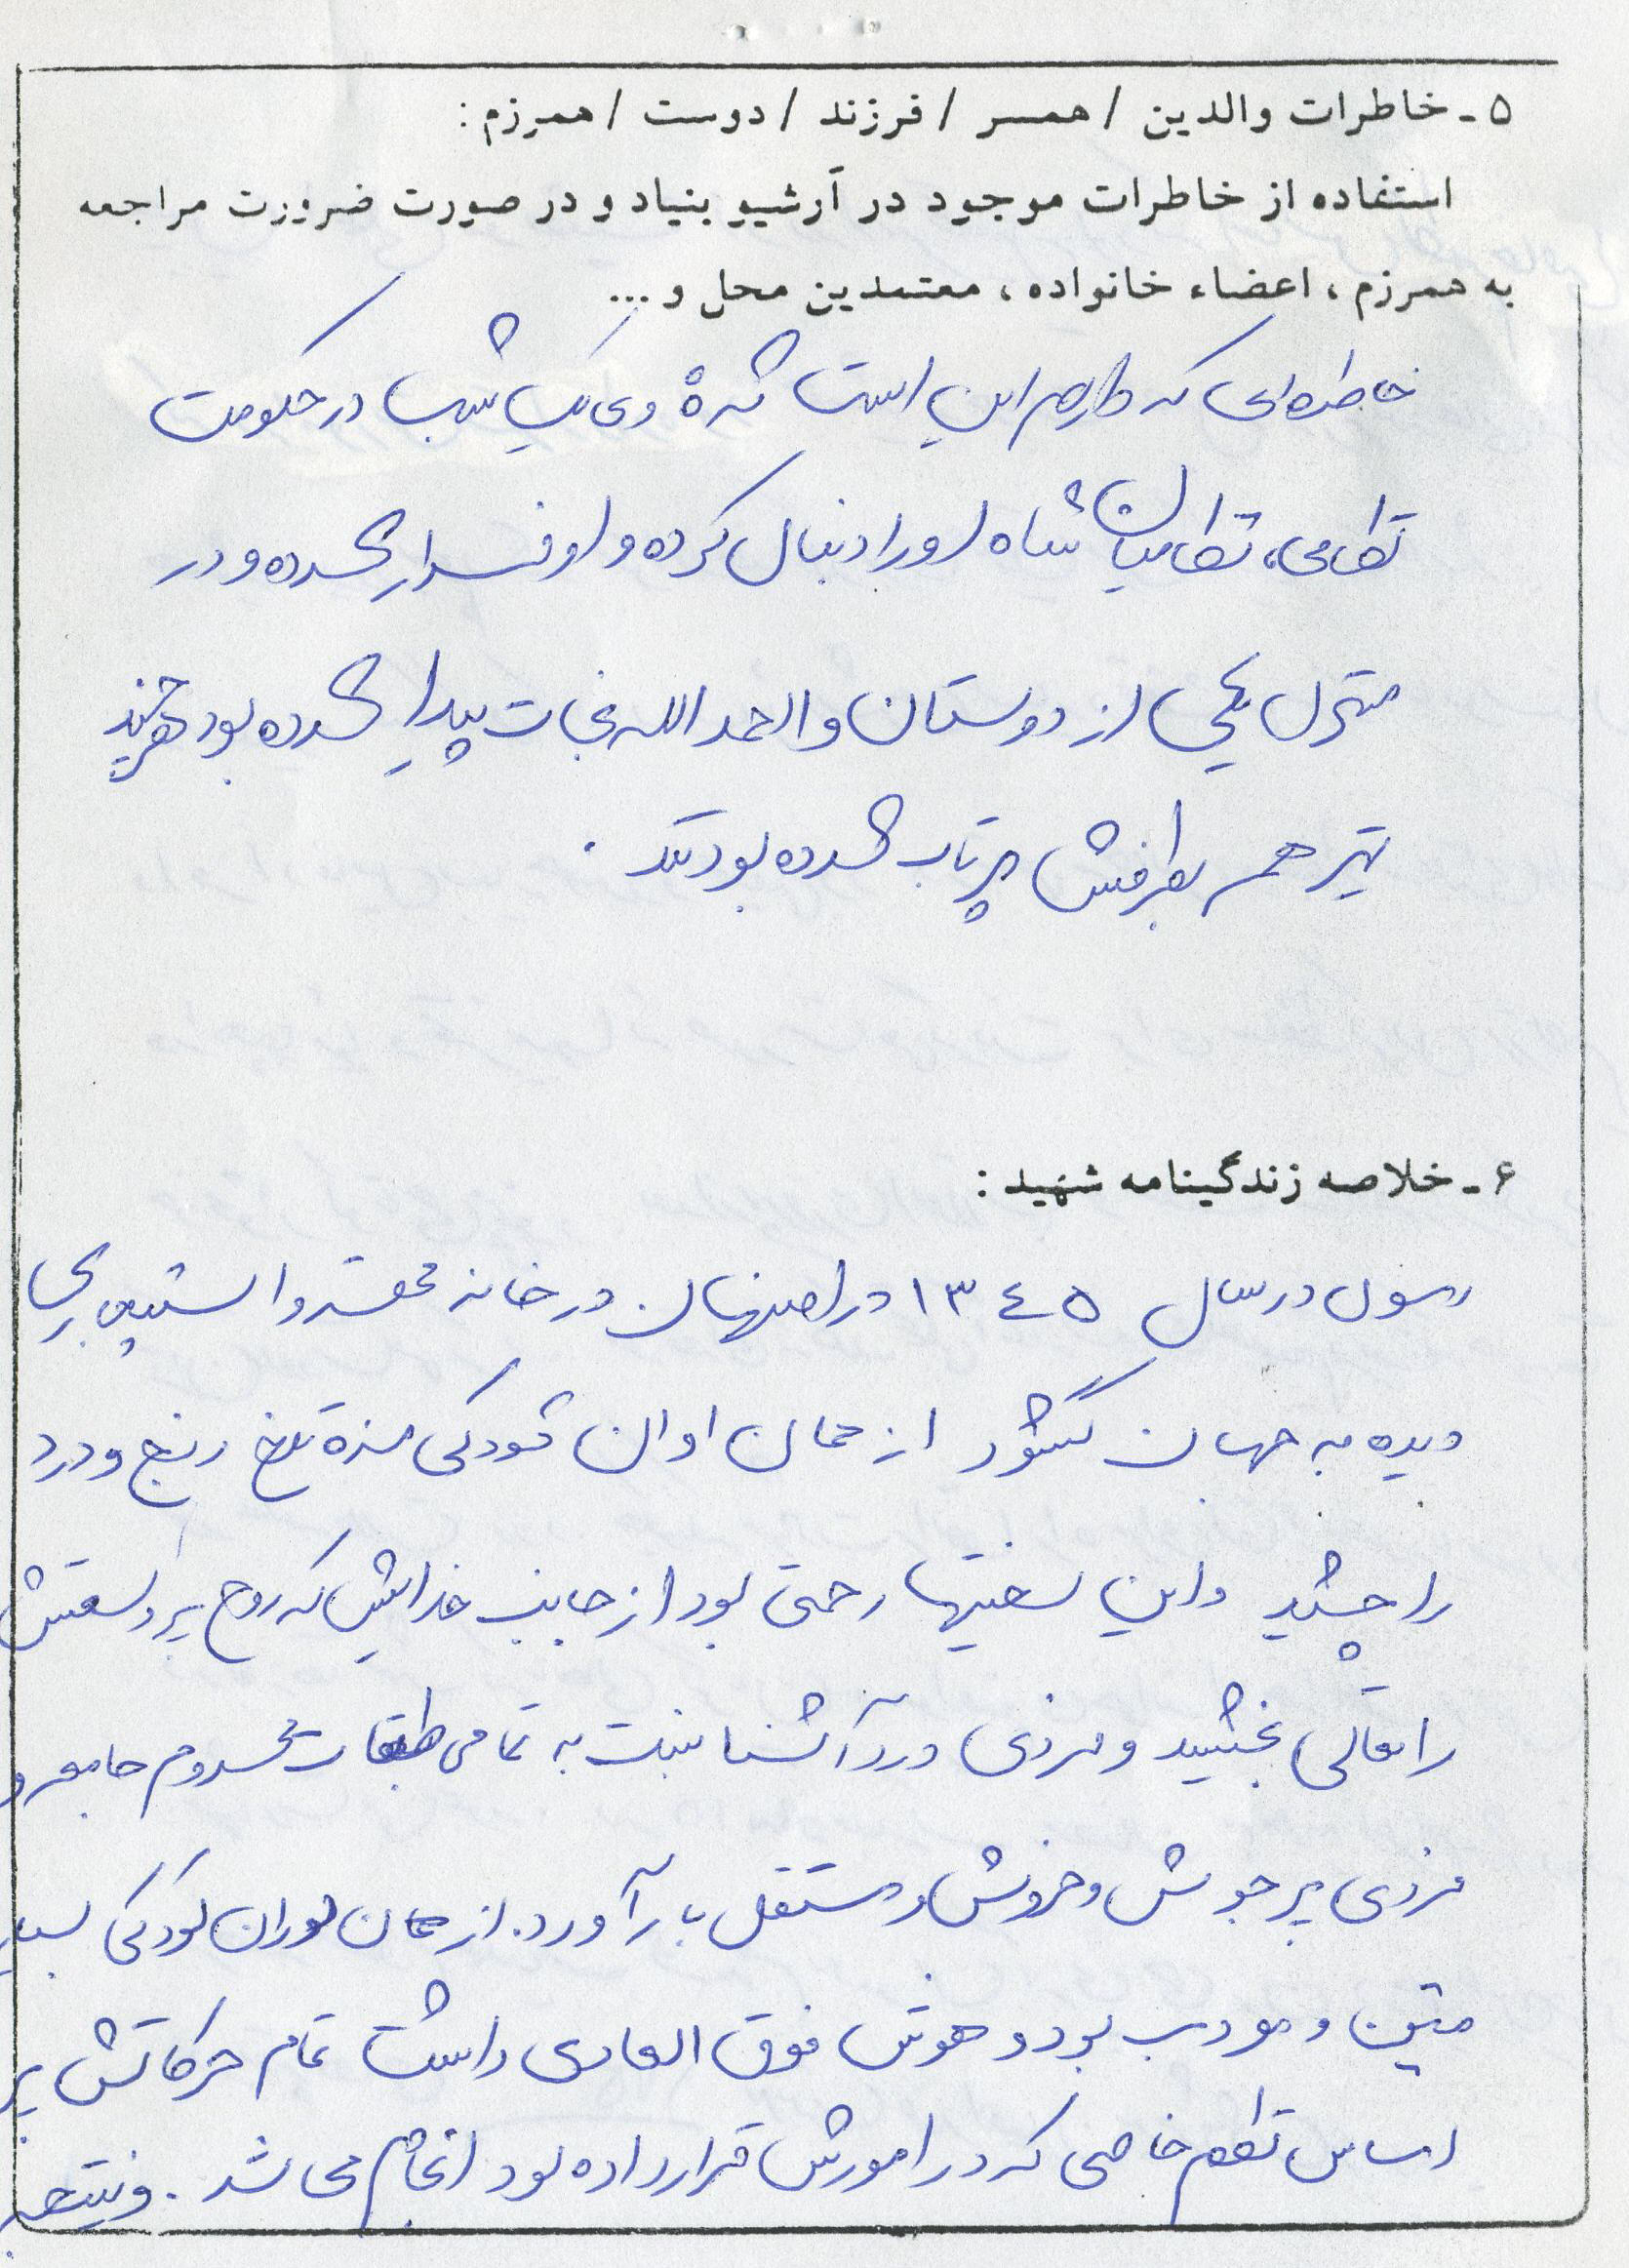 ۵ ـ خاطرات والدین / همسر / فرزند / دوست / همرزم :
استفاده از خاطرات موجود در آرشیو بنیاد و در صورت ضرورت مراجعه
به همرزم ، اعضاء خانواده ، معتمدین محل و ...
خاطره‌ای که دارم این است که وی یک شب در حکومت
نظامی، نظامیان شاه او را دنبال کرده و او فرار کرده و در
منزل یکی از دوستان و الحمد الله نجات پیدا کرده بود هرچند
تیر هم بطرفش پرتاب کرده بودند .
۶ ـ خلاصه زندگینامه شهید :
رسول در سال ۱۳٤۵ در اصفهان در خانه محقر و استیجاری
دیده به جهان گشود از همان اوان کودکی مزه تلخ رنج و درد
را چشید و این سختیها رحمتی بود از جانب خدایش که روح پر
را تعالی بخشید و فردی درد آشنا نسبت به تمامی طبقات محروم جامعه و
فردی پر جوش و خروش و مستقل بار آورد. از همان دوران کودکی بسیار
متین و مودب بود و هوش فوق العادی داشت تمام حرکاتش بر
اساس نظم خاصی که در امورش قرار داده بود انجام می شد . و نتیجه